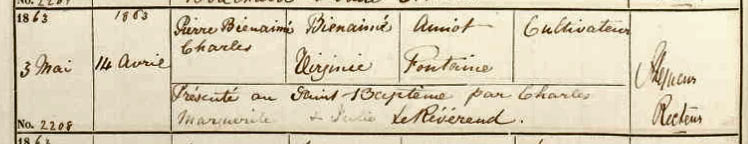 1863 1863 Pierre Bienaimé Bienaimé Amiot Cultivateur
Charles
3 Mai 14 Avril Virginie Fontaine
Présenté au Saint-Baptême par Charles
Recteur
Marguerite & Julie LeRévérend.
No. 2208
1863